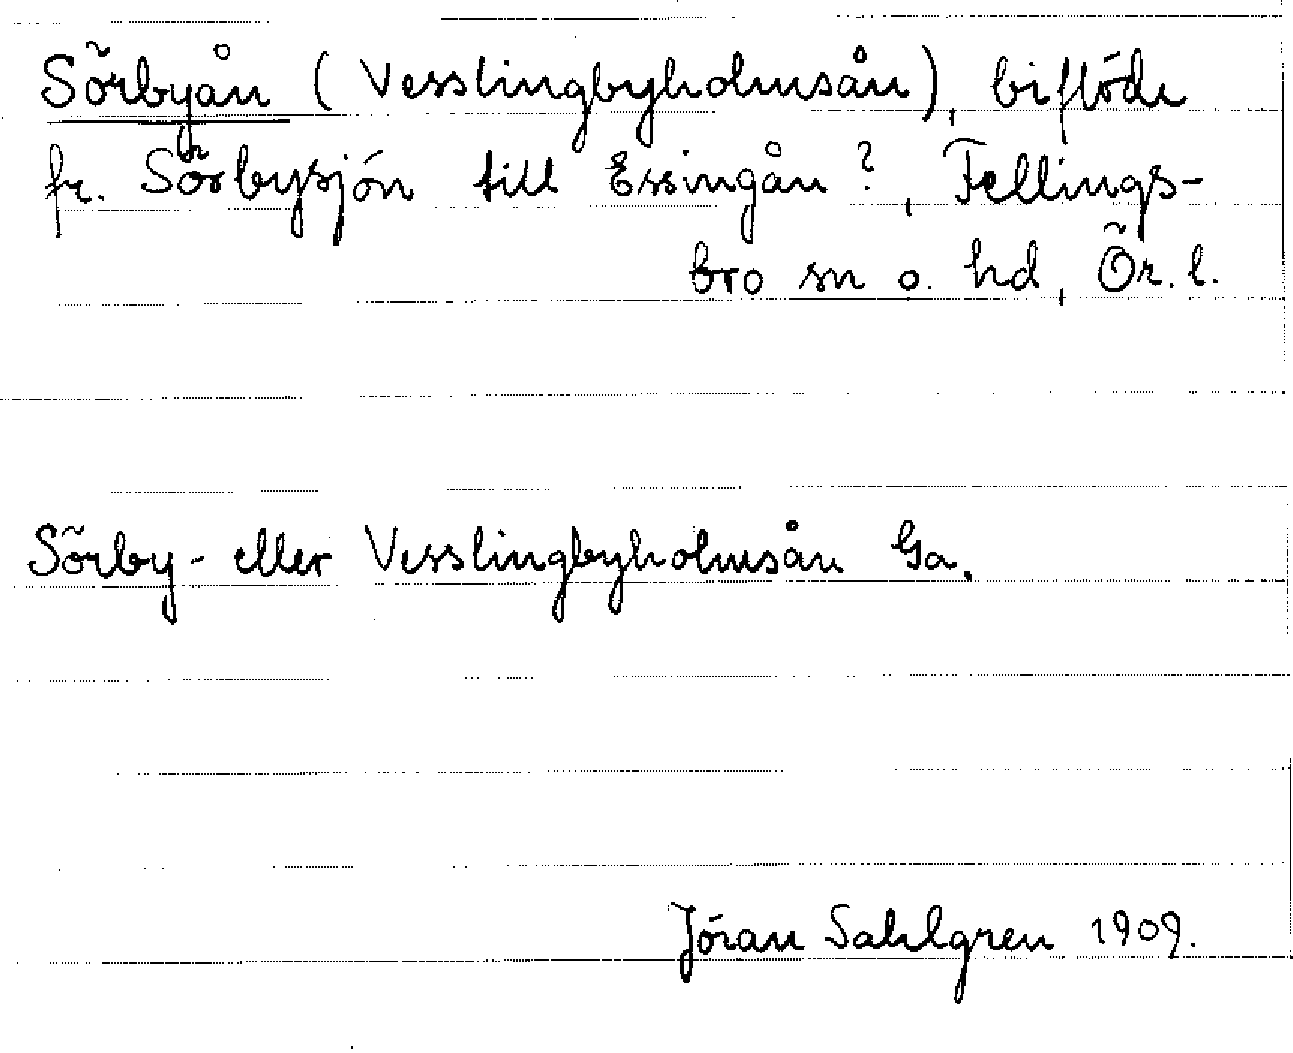 Sörbyån (Vesslingbyholmsån), biflöde
fr. Sörbysjön till Essingån?, Fellings-
bro sn o. hd, Ör. l.
Sörby- eller Vesslingbyholmsån Ga.
Jöran Sahlgren 1909.